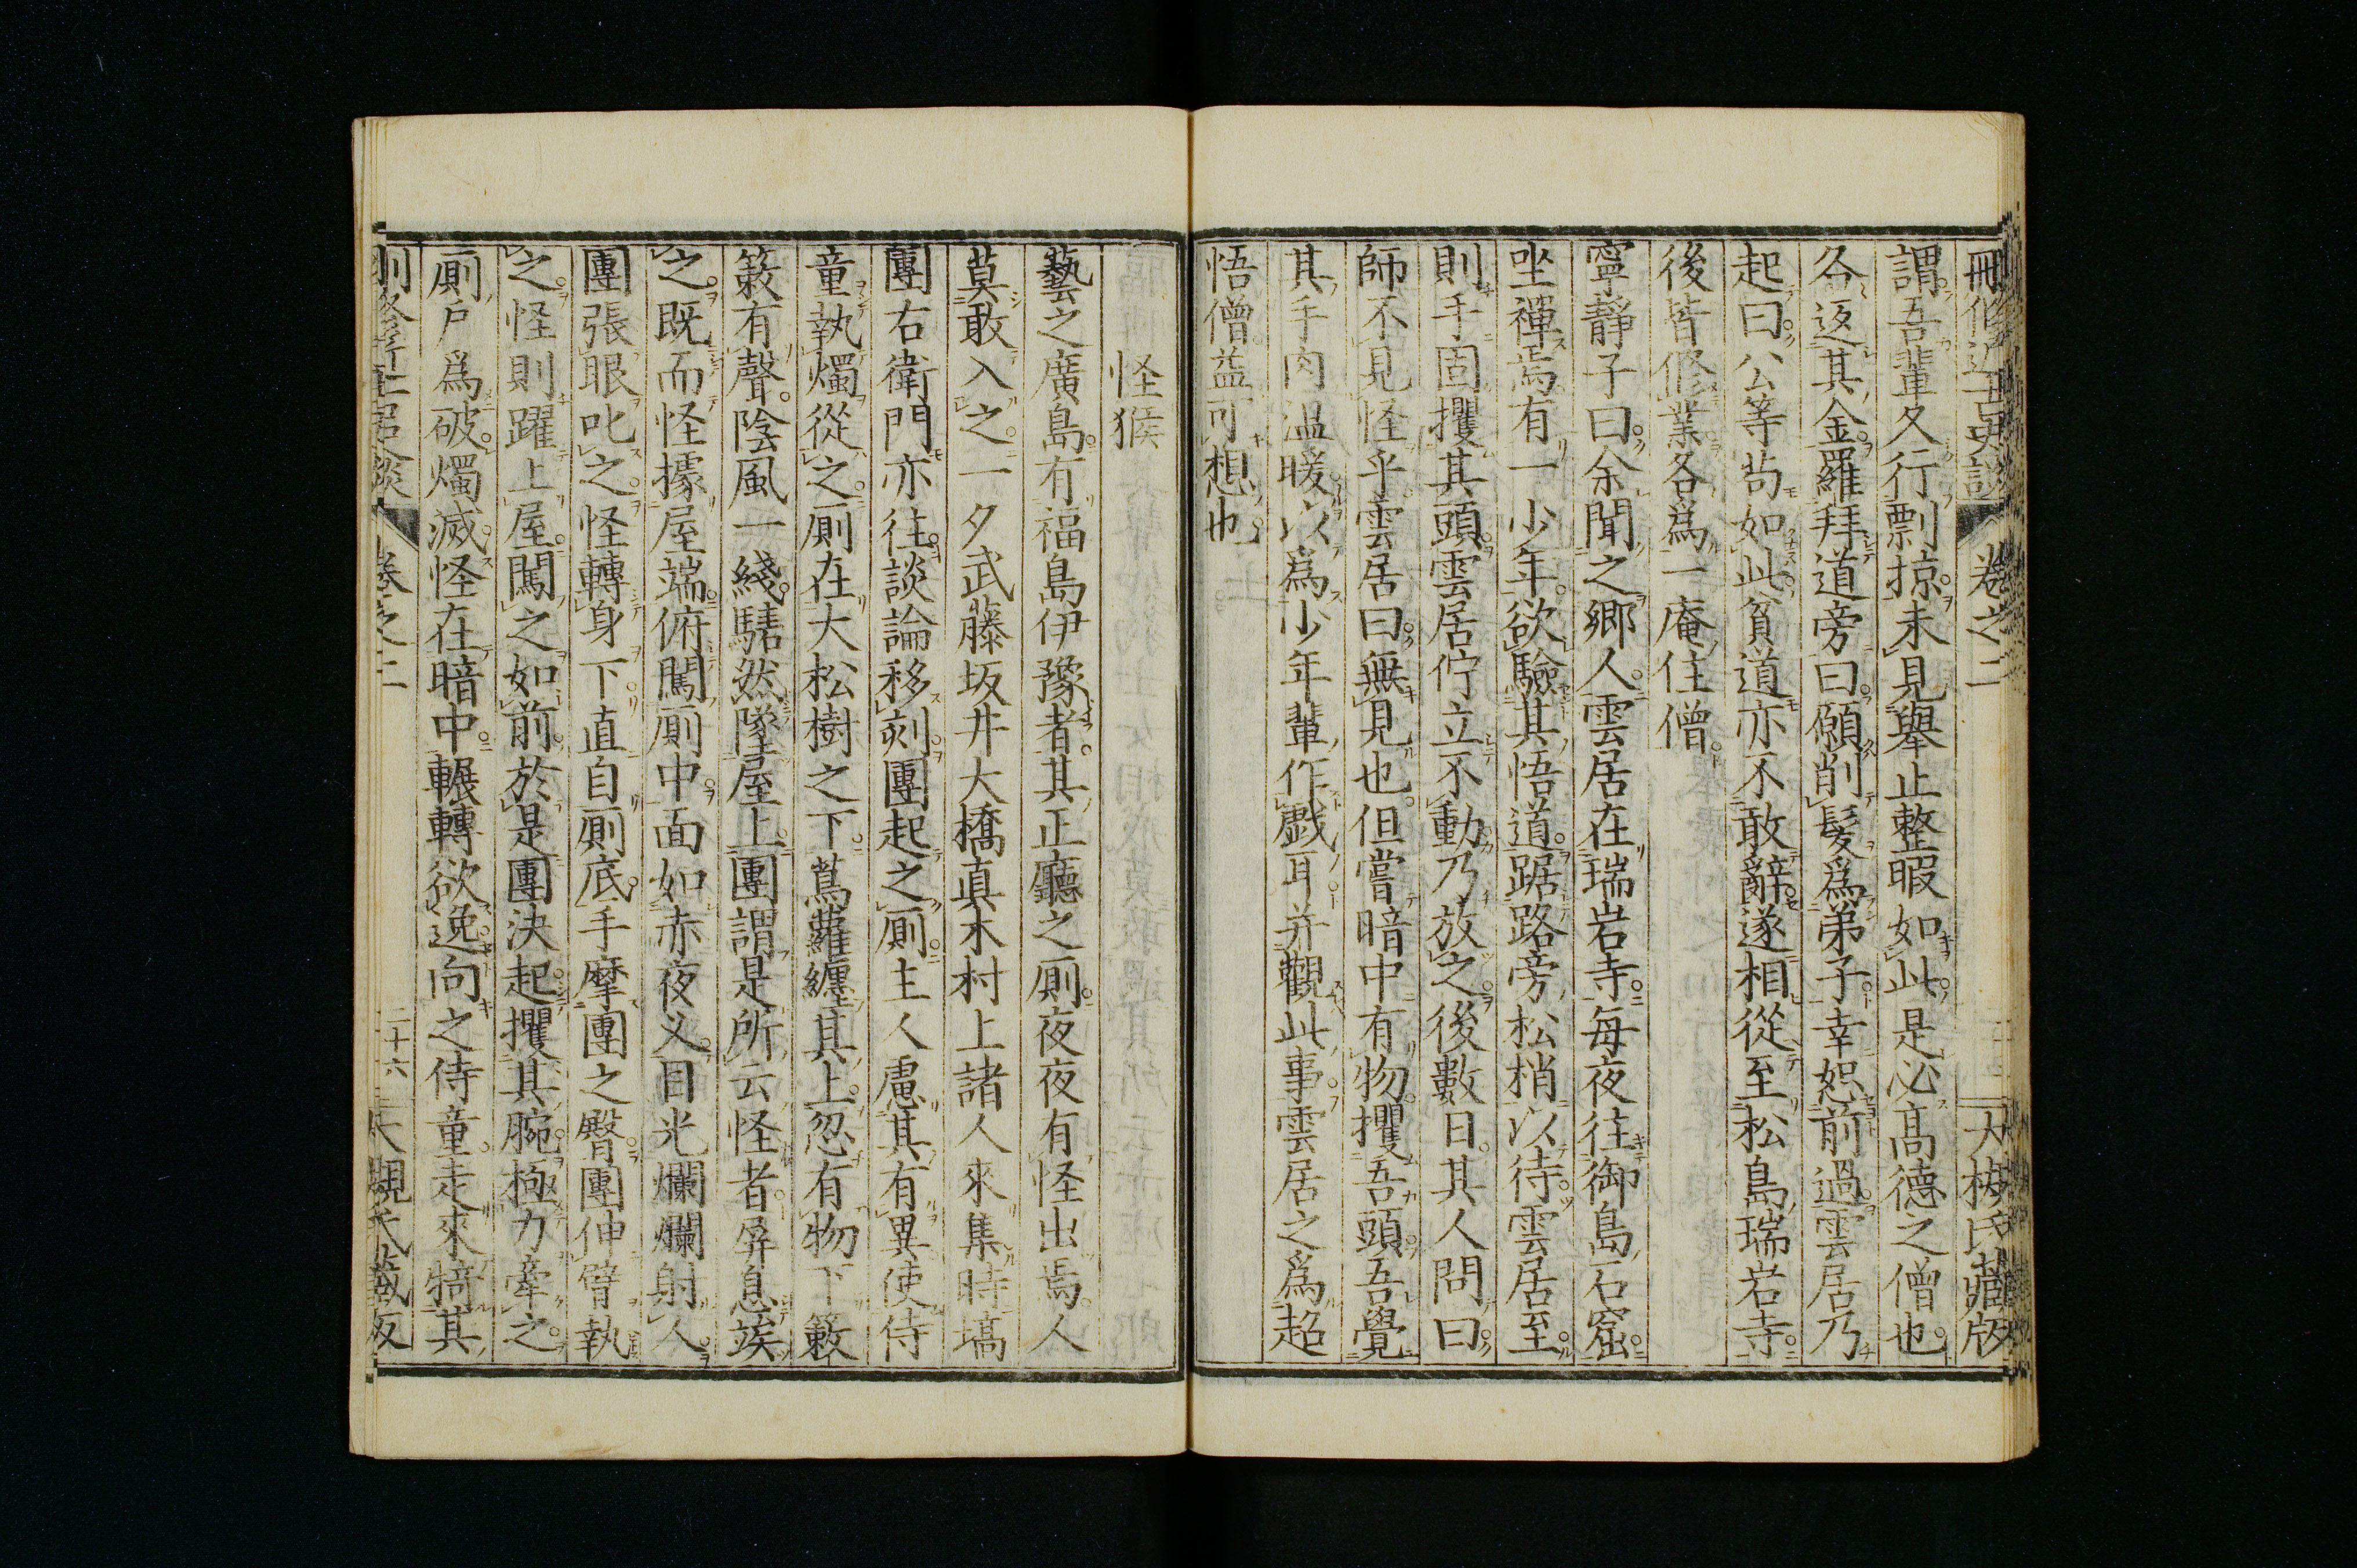 刪修近古史談 卷之二 大槻氏藏版
謂吾輩久行剽掠未見舉止整暇如此是必高德之僧也
各返其金羅拜道旁曰願削髮爲弟子幸恕前過雲居乃
起曰公等苟如此貧道亦不敢辭遂相從至松島瑞岩寺
後皆修業各爲一庵住僧
寧靜子曰余聞之鄉人雲居在瑞岩寺每夜往御島石窟
坐禪焉有一少年欲驗其悟道踞路旁松梢以待雲居至
則手固攫其頭雲居佇立不動乃放之後數日其人問曰
師不見怪乎雲居曰無見也但嘗暗中有物攫吾頭吾覺
其手肉温暖以爲少年輩作戲耳并觀此事雲居之爲超
悟僧益可想也
怪猴
藝之廣島有福島伊豫者其正廳之厠夜夜有怪出焉人
莫敢入之一夕武藤坂井大橋真木村上諸人來集時塙
團右衛門亦往談論移刻團起之厠主人慮其有異使侍
童執燭從之厠在大松樹之下蔦蘿纏其上忽有物下簌
簌有聲陰風一綫騞然墜屋上團謂是所云怪者屏息竢
之既而怪據屋端俯闖厠中面如赤夜叉目光爛爛射人
團張眼叱之怪轉身下直自厠底手摩團之臀團伸臂執
之怪則躍上屋闖之如前於是團決起攫其腕極力牽之
厠戶爲破燭滅怪在暗中輾轉欲逸向之侍童走來犄其
刪修近古史談 卷之二 二十六 大槻氏藏版